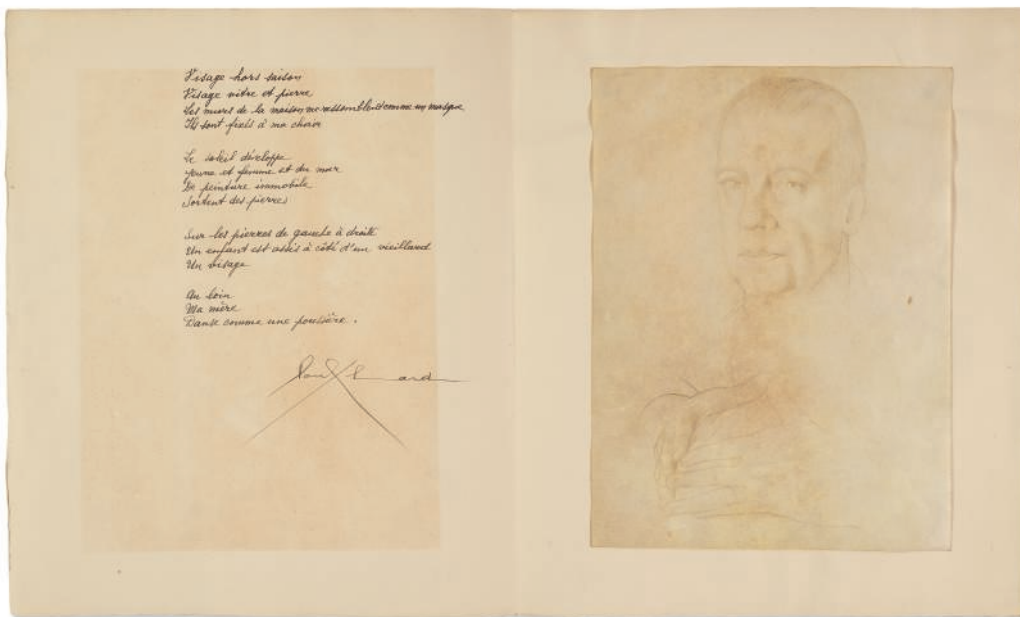 Visage hors saison
Visage vitre et pierre
Les murs de la maison me ressemblent comme un masque
Ils sont fixés à ma chair
Le soleil développe
et femme et du mur
De peinture immobile
Sortent des pierres
Sur les pierres de gauche à droite
Un enfant est assis à côté d'un vieillard
Un visage
Au loin
Ma mère
Danse comme une poussière.
Paul Eluard